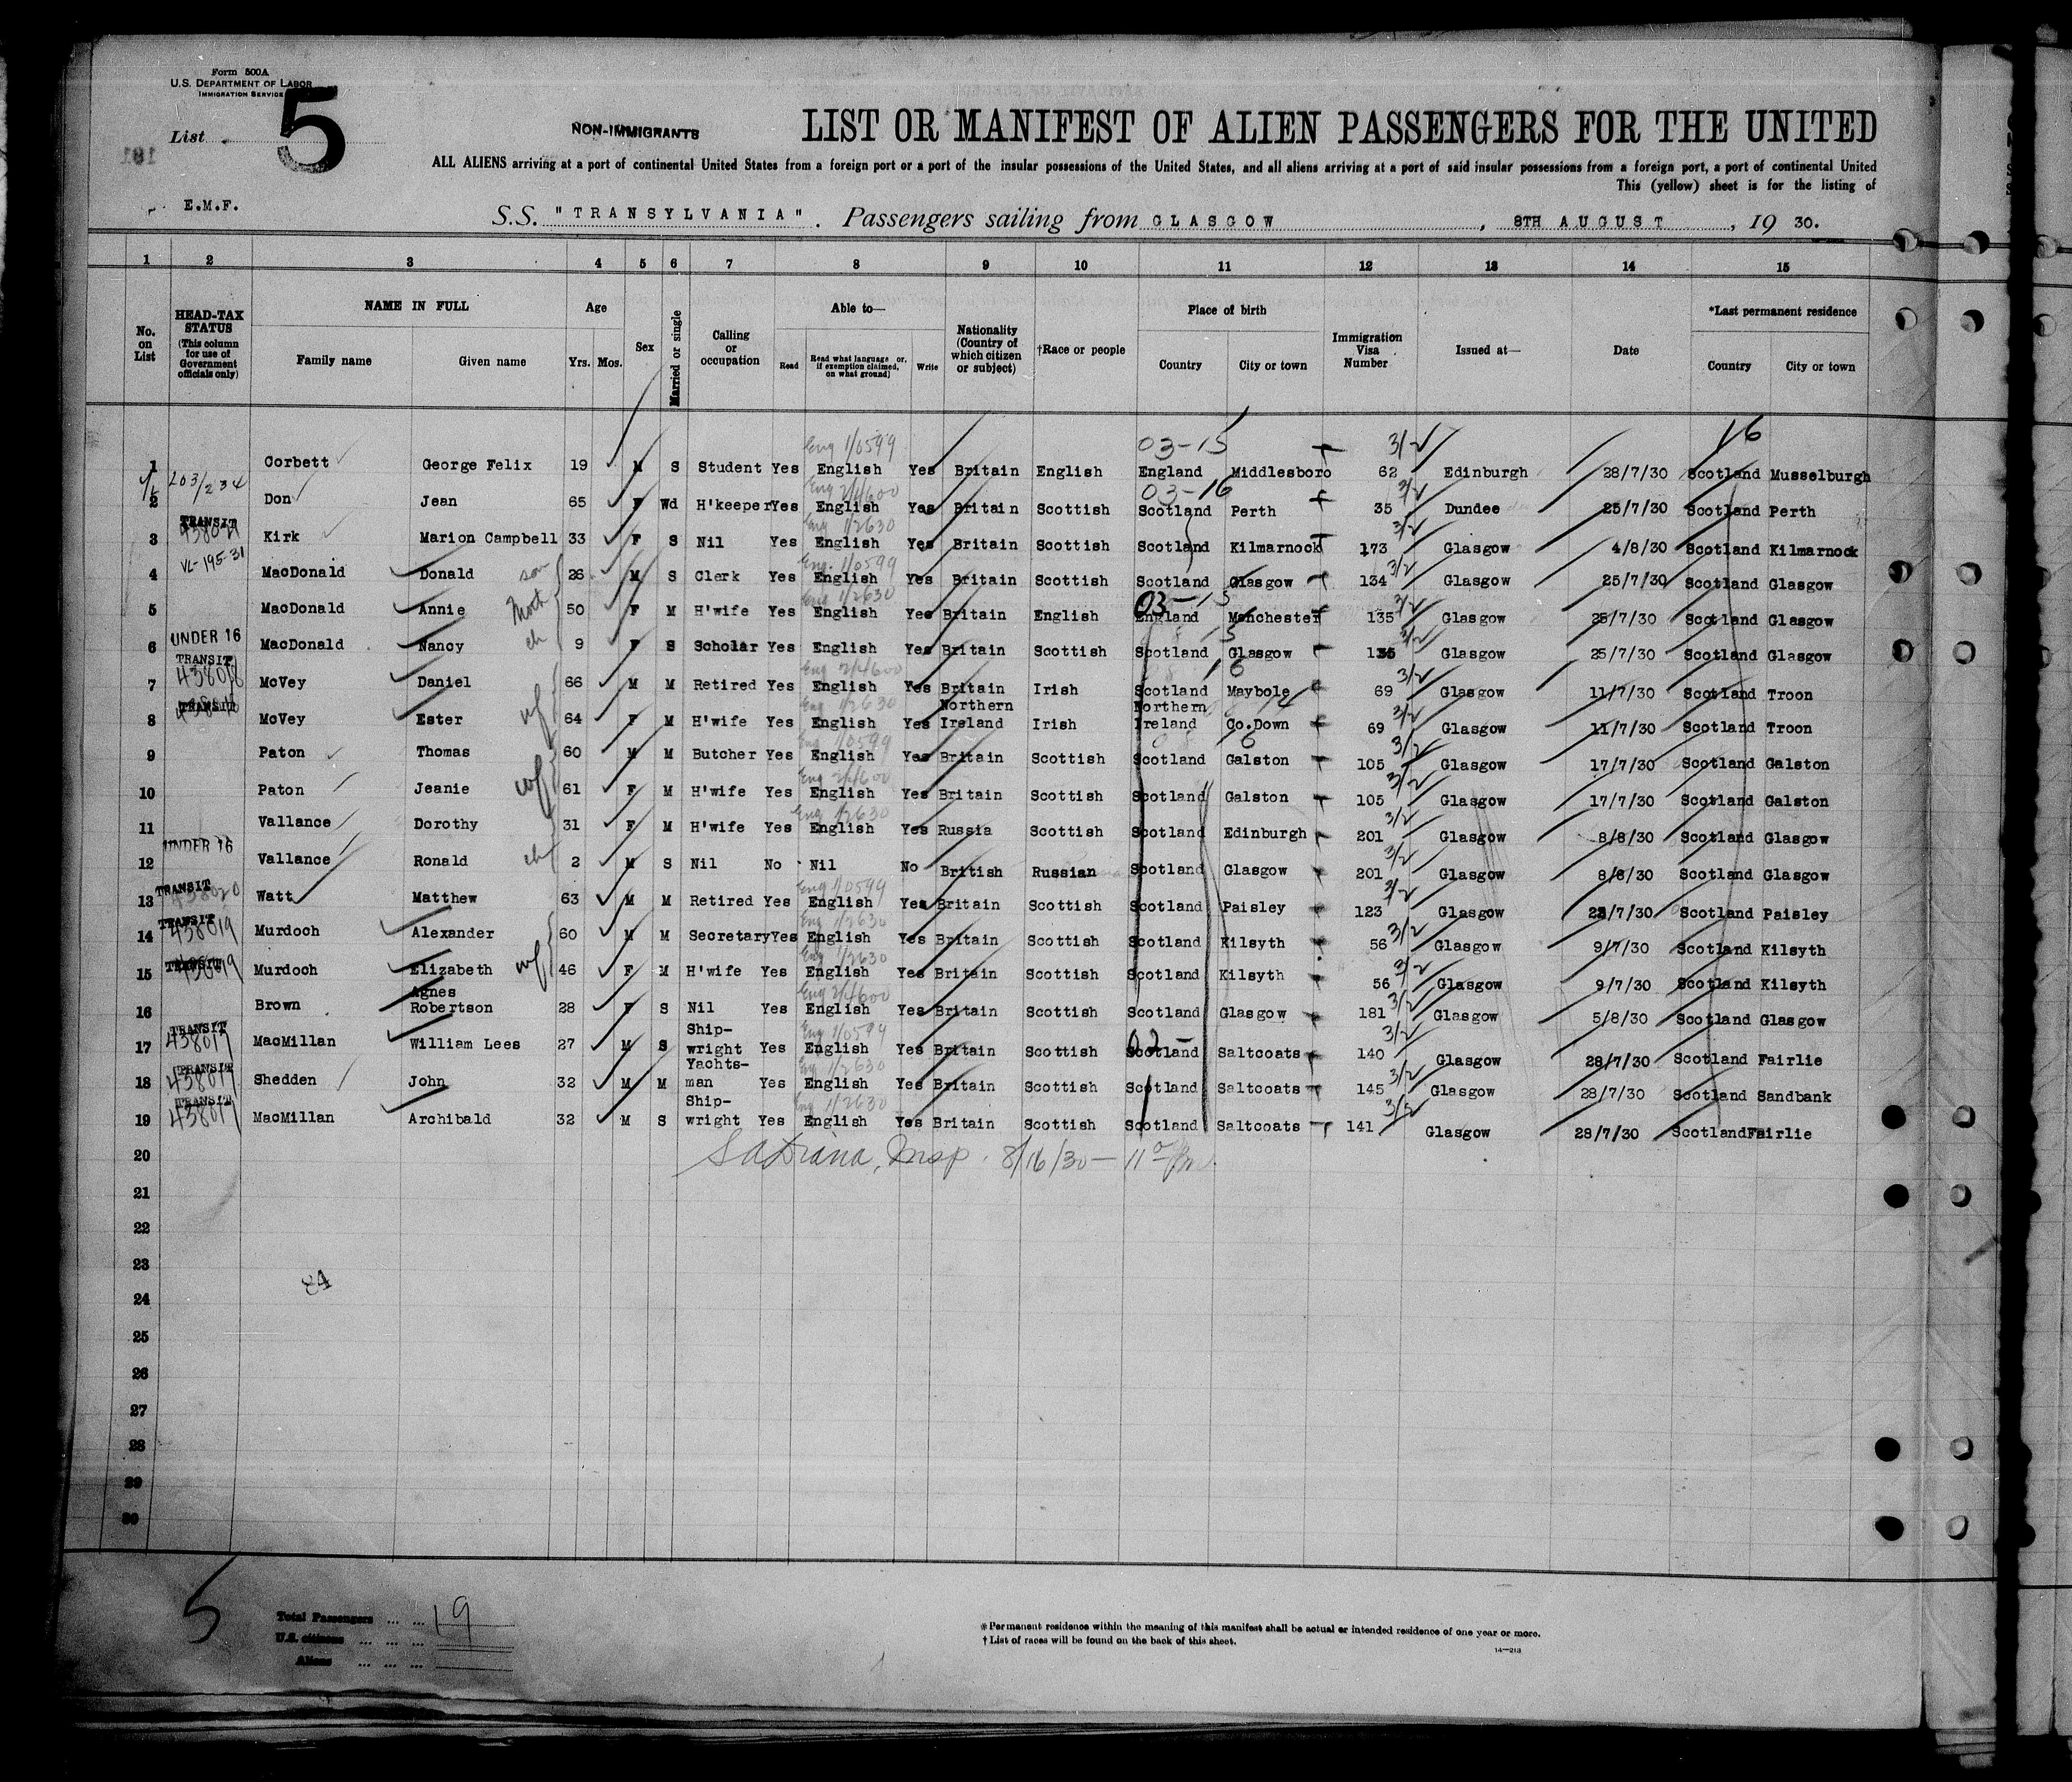 Form 500A
U.S. DEPARTMENT OF LABOR
IMMIGRATION SERVICE
List 5
NON-IMMIGRANTS
LIST OR MANIFEST OF ALIEN PASSENGERS FOR THE UNITED
ALL ALIENS arriving at a port of continental United States from a foreign port or a port of the insular possessions of the United States, and all aliens arriving at a port of said insular possessions from a foreign port, a port of continental United
This (yellow) sheet is for the listing of
E.M.F.
S.S. "TRANSYLVANIA". Passengers sailing from GLASGOW, 8TH AUGUST, 19 30.
1 2 3 4 5 6 7 8 9 10 11 12 13 14 15
No. on List
HEAD-TAX STATUS (This column for use of Government officials only)
NAME IN FULL
Family name Given name
Age
Yrs. Mos.
Sex
Married or single
Calling or occupation
Able to—
Read Read what language or, if exemption claimed, on what ground] Write
Nationality (Country of which citizen or subject)
†Race or people
Place of birth
Country City or town
Immigration Visa Number
Issued at—
Date
*Last permanent residence
Country City or town
Eng 1/0599 03-15 3/2 16
1 Corbett George Felix 19 M S Student Yes English Yes Britain English England Middlesboro 62 Edinburgh 28/7/30 Scotland Musselburgh
203/234 Eng 2/4600 03-16 3/2
2 Don Jean 65 F Wd H'keeper Yes English Yes Britain Scottish Scotland Perth 35 Dundee 25/7/30 Scotland Perth
TRANSIT Eng 1/2630 3/2
3 Kirk Marion Campbell 33 F S Nil Yes English Yes Britain Scottish Scotland Kilmarnock 173 Glasgow 4/8/30 Scotland Kilmarnock
VL-195-31 Eng. 1/0599 3/2
4 MacDonald Donald son 26 M S Clerk Yes English Yes Britain Scottish Scotland Glasgow 134 Glasgow 25/7/30 Scotland Glasgow
Eng 1/2630 03-15 3/2
5 MacDonald Annie Moth 50 F M H'wife Yes English Yes Britain English England Manchester 135 Glasgow 25/7/30 Scotland Glasgow
UNDER 16 15 3/2
6 MacDonald Nancy ch 9 F S Scholar Yes English Yes Britain Scottish Scotland Glasgow 135 Glasgow 25/7/30 Scotland Glasgow
TRANSIT 438018 Eng 2/4600 16 3/2
7 McVey Daniel 66 M M Retired Yes English Yes Britain Irish Scotland Maybole 69 Glasgow 11/7/30 Scotland Troon
TRANSIT Eng 1/2630 Northern Northern 14 3/2
8 McVey Ester wf 64 F M H'wife Yes English Yes Ireland Irish Ireland Co.Down 69 Glasgow 11/7/30 Scotland Troon
Eng 1/0599 3/2
9 Paton Thomas 60 M M Butcher Yes English Yes Britain Scottish Scotland Galston 105 Glasgow 17/7/30 Scotland Galston
Eng 2/4600 3/2
10 Paton Jeanie wf 61 F M H'wife Yes English Yes Britain Scottish Scotland Galston 105 Glasgow 17/7/30 Scotland Galston
Eng 1/2630 3/2
11 Vallance Dorothy 31 F M H'wife Yes English Yes Russia Scottish Scotland Edinburgh 201 Glasgow 8/8/30 Scotland Glasgow
UNDER 16 3/2
12 Vallance Ronald ch 2 M S Nil No Nil No British Russian Scotland Glasgow 201 Glasgow 8/8/30 Scotland Glasgow
TRANSIT 438020 Eng 1/0599 3/2
13 Watt Matthew 63 M M Retired Yes English Yes Britain Scottish Scotland Paisley 123 Glasgow 23/7/30 Scotland Paisley
TRANSIT 438019 Eng 1/2630 3/2
14 Murdoch Alexander 60 M M Secretary Yes English Yes Britain Scottish Scotland Kilsyth 56 Glasgow 9/7/30 Scotland Kilsyth
TRANSIT 438019 Eng 1/2630 3/2
15 Murdoch Elizabeth wf 46 F M H'wife Yes English Yes Britain Scottish Scotland Kilsyth 56 Glasgow 9/7/30 Scotland Kilsyth
Agnes Eng 2/4600 3/2
16 Brown Robertson 28 F S Nil Yes English Yes Britain Scottish Scotland Glasgow 181 Glasgow 5/8/30 Scotland Glasgow
TRANSIT 438017 Ship- Eng 1/0599 3/2
17 MacMillan William Lees 27 M S wright Yes English Yes Britain Scottish Scotland Saltcoats 140 Glasgow 28/7/30 Scotland Fairlie
TRANSIT 438017 Yachts- Eng 1/2630 3/2
18 Shedden John 32 M M man Yes English Yes Britain Scottish Scotland Saltcoats 145 Glasgow 28/7/30 Scotland Sandbank
TRANSIT 438017 Ship- Eng 1/2630 3/2
19 MacMillan Archibald 32 M S wright Yes English Yes Britain Scottish Scotland Saltcoats 141 Glasgow 28/7/30 Scotland Fairlie
20 Insp. 8/16/30 — 11
21
22
23
24
25
26
27
28
29
30
84
5
Total Passengers ... ... 19
U.S. citizens ... ... ...
Aliens ... ... ...
*Permanent residence within the meaning of this manifest shall be actual or intended residence of one year or more.
†List of races will be found on the back of this sheet.
14—213